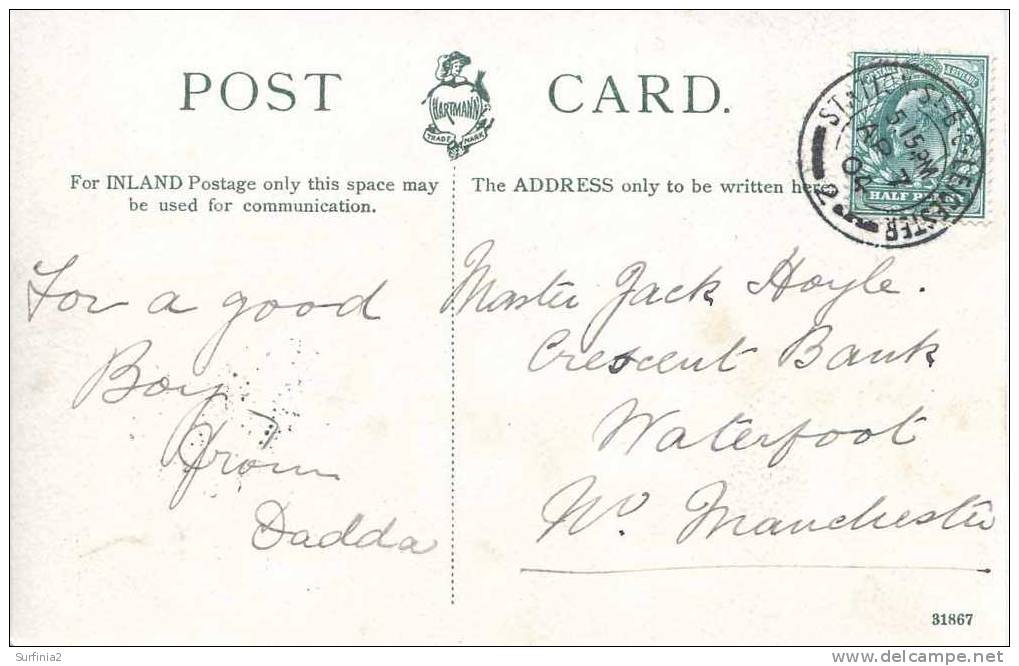 POST CARD.
HARTMANN
TRADE MARK
For INLAND Postage only this space may
be used for communication.
The ADDRESS only to be written here
POSTAGE & REVENUE
HALF P
5 15 PM
AP 7
04
LEICESTER
For a good
Boy
from
Dadda
Master Jack Hoyle.
Crescent Bank
Waterfoot
Nr. Manchester
31867
Surfinia2
www.delcampe.net